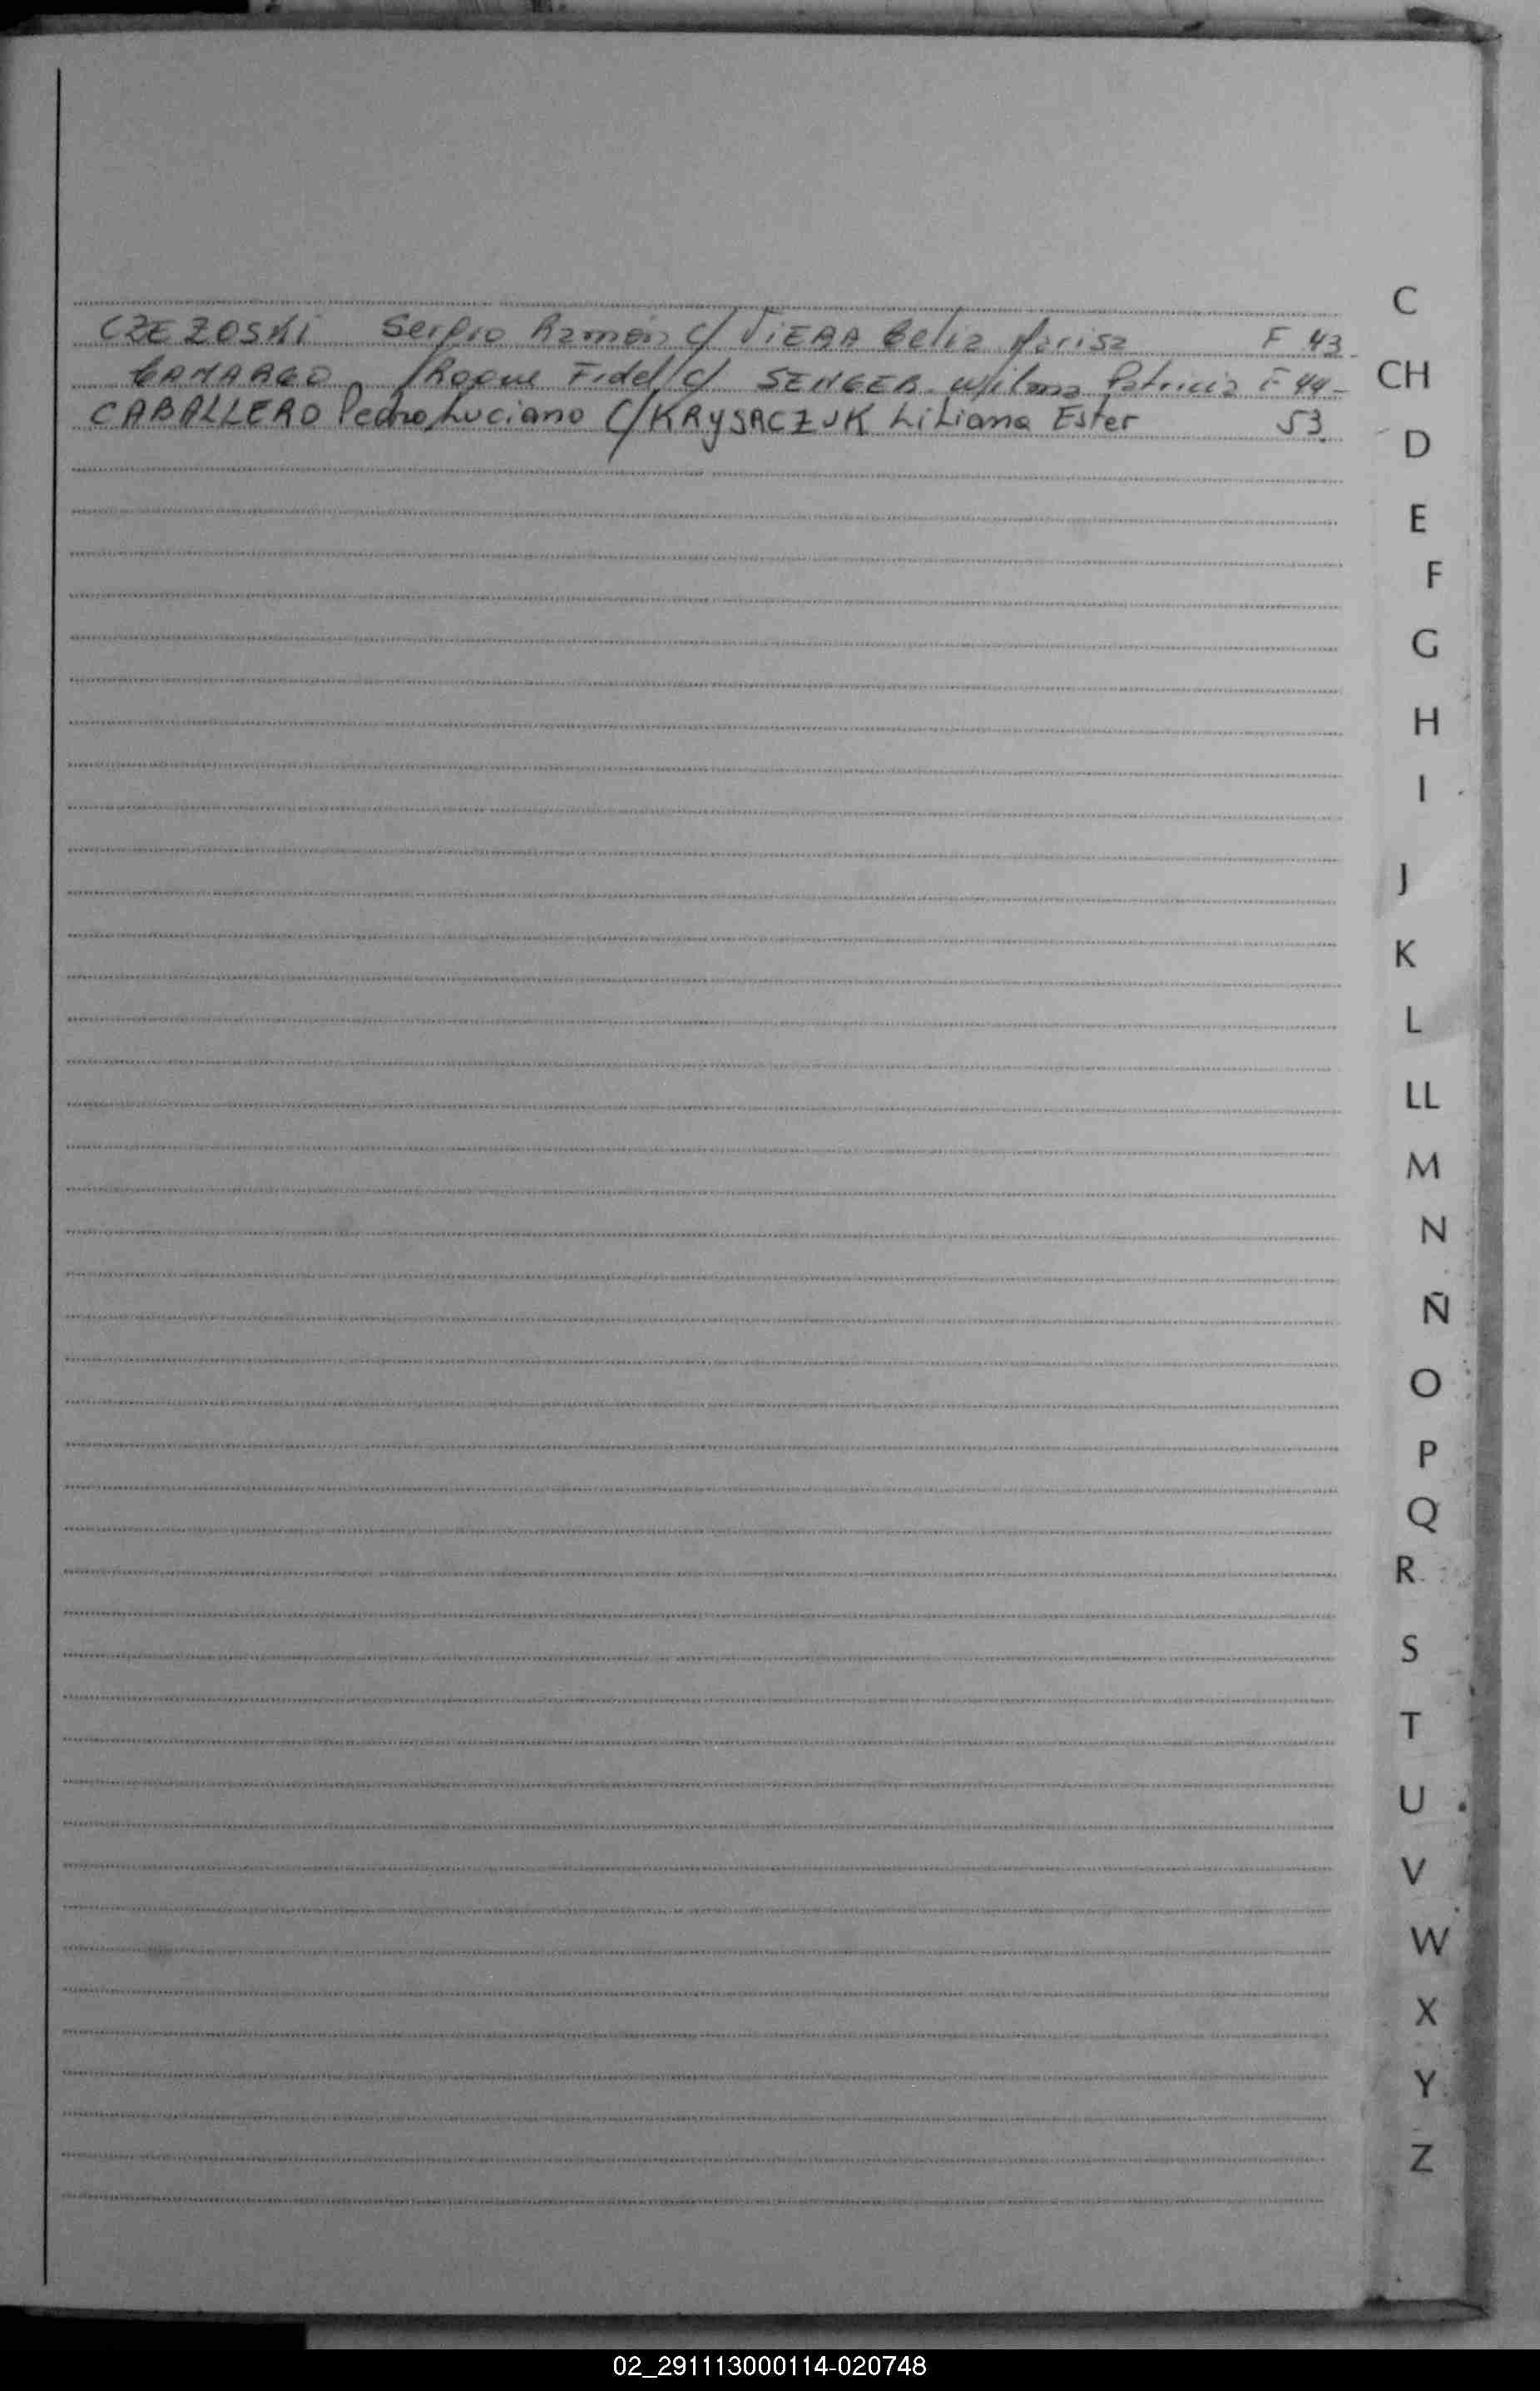 CZEZOSKI Sergio Ramón c/ VIERA Celia Marisa F 43
CAMARGO, Roque Fidel c/ SENGER Wilma Patricia F 44
CABALLERO Pedro Luciano C/ KRYSACZUK Liliana Ester 53
C
CH
D
E
F
G
H
I
J
K
L
LL
M
N
Ñ
O
P
Q
R
S
T
U
V
W
X
Y
Z
02_291113000114-020748